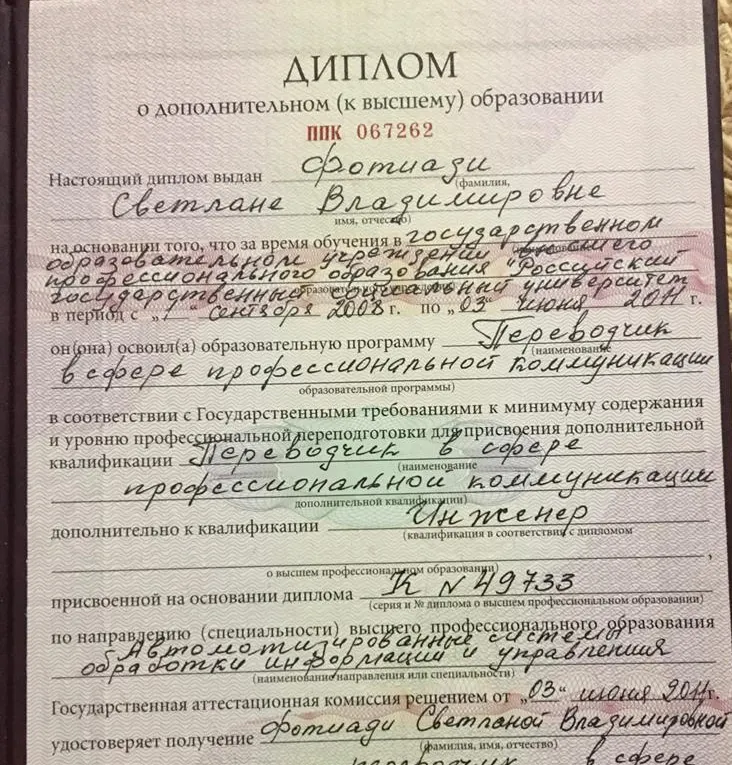 ДИПЛОМ
о дополнительном (к высшему) образовании
ППК 067262
Настоящий диплом выдан Фотиади
(фамилия,
Светлане Владимировне
имя, отчество)
на основании того, что за время обучения в государственном
образовательном учреждении высшего
профессионального образования "Российский
государственный социальный университет
в период с „1" сентября 2008 г. по „03" июня 2011 г.
он(она) освоил(а) образовательную программу Переводчик
(наименование
в сфере профессиональной коммуникации
образовательной программы)
в соответствии с Государственными требованиями к минимуму содержания
и уровню профессиональной переподготовки для присвоения дополнительной
квалификации Переводчик в сфере
(наименование
профессиональной коммуникации
дополнительной квалификации)
дополнительно к квалификации Инженер
(квалификация в соответствии с дипломом
,
о высшем профессиональном образовании)
присвоенной на основании диплома К N 49733
(серия и № диплома о высшем профессиональном образовании)
по направлению (специальности) высшего профессионального образования
Автоматизированные системы
обработки информации и управления
(наименование направления или специальности)
Государственная аттестационная комиссия решением от „03" июня 2011г.
удостоверяет получение Фотиади Светланой Владимировной
(фамилия, имя, отчество)
в сфере